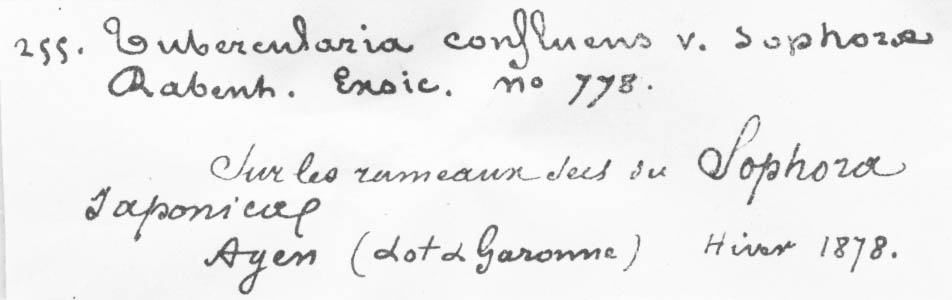 255. Tubercularia confluens v. Sophorae
Rabenh. Exsic. no 778.
Sur les rameaux secs du Sophora
Japonical
Agen (Lot & Garonne) Hiver 1878.